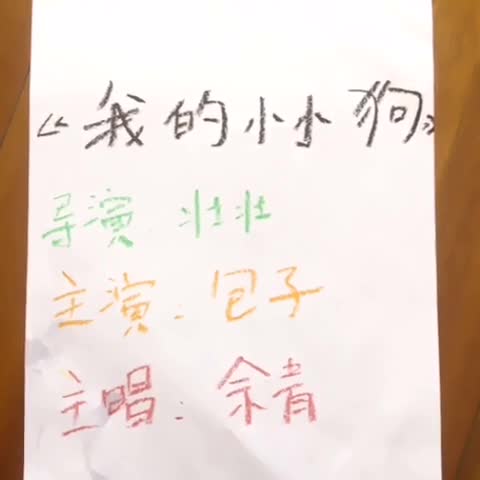 《我的小小狗》
导演 壮壮
主演：包子
主唱：余青